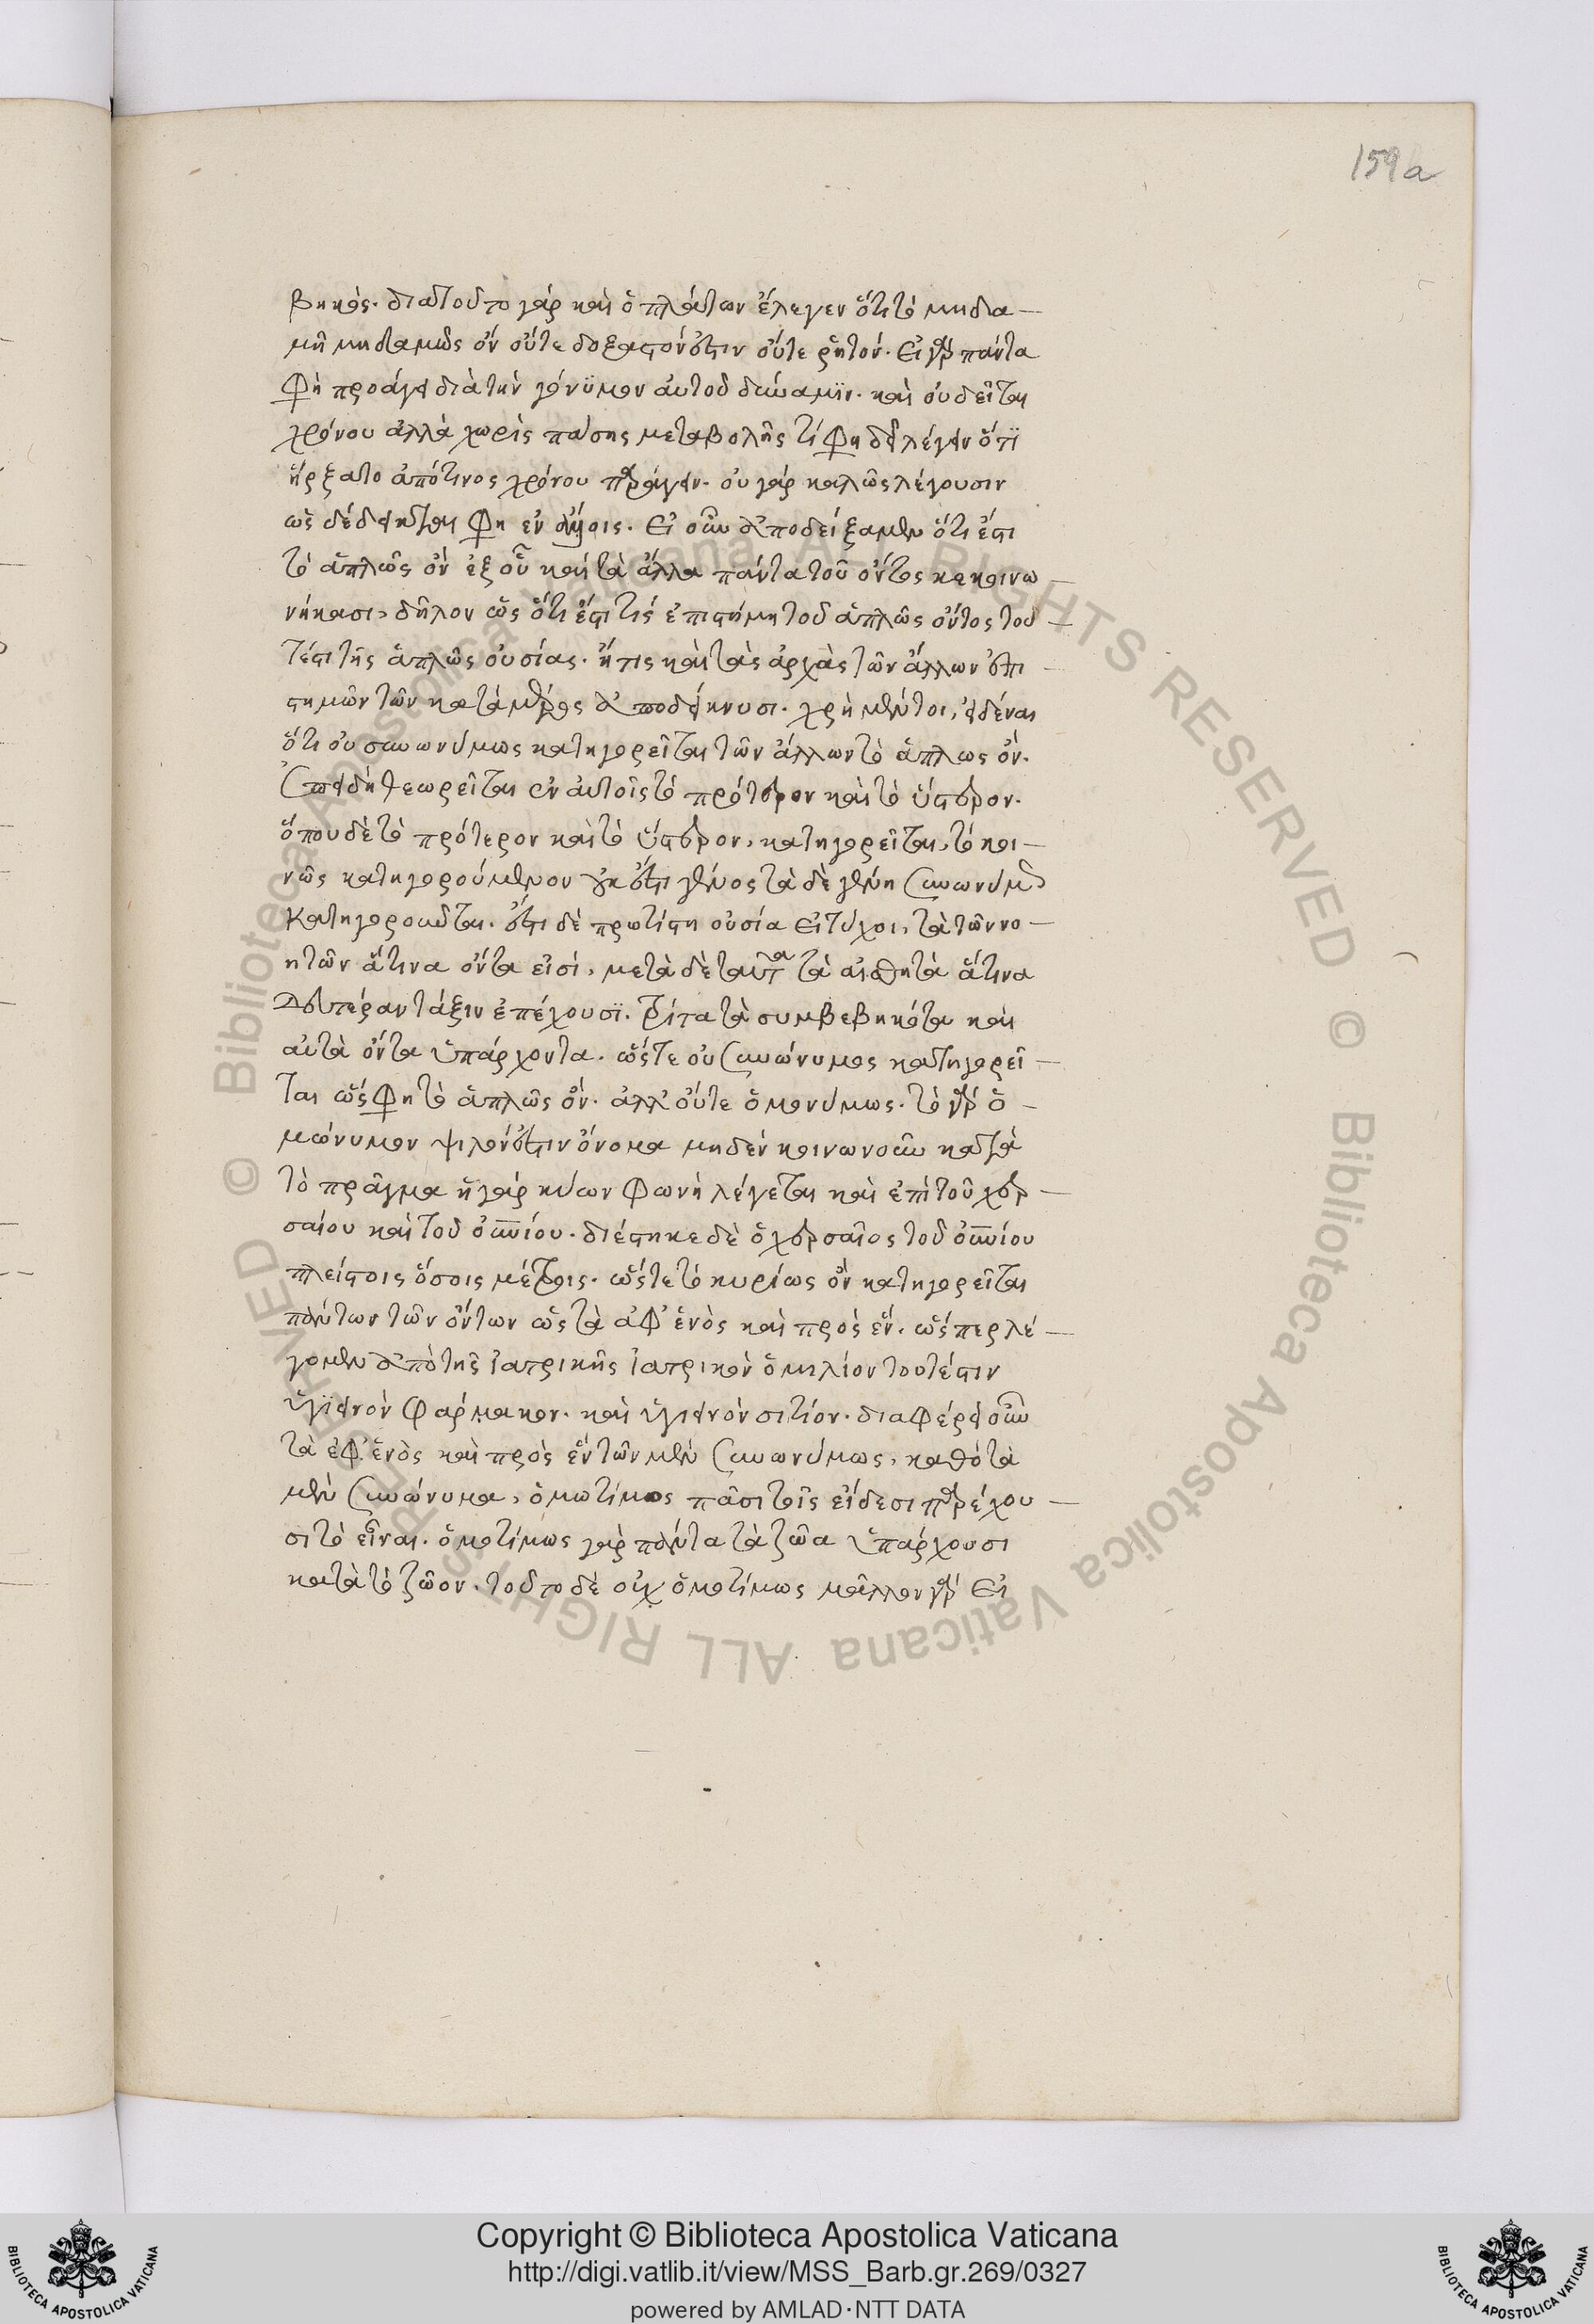 159a
βηκός. διατοῦτο γάρ καὶ ὁ πλάτων ἔλεγεν ὅτι τὸ μηδα-
μῆ μηδαμῶς ὂν οὔτε δοξαστόν ἐστιν οὔτε ῥητόν. Εἰ γὰρ πάντα
φὴ προάγει διὰ τὴν γόνϋμον αὐτοῦ δύναμϊν. καὶ οὐ δεῖται
χρόνου ἀλλὰ χωρὶς πάσης μεταβολῆς τί φη δεῖ λέγειν ὅτϊ
ἤρξατο ἀπό τινος χρόνου παράγειν. οὐ γάρ καλῶς λέγουσιν
ὡς δέδεικται φη ἐν
Εἰ οὖν ἀποδείξαμεν ὅτι ἔστι
τὸ ἁπλῶς ὂν ἐξ οὗ καὶ τὰ ἄλλα πάντα τοῦ ὄντος κεκοινω-
νήκασι, δῆλον ὡς ὅτι ἔστι τίς ἐπιστήμη τοῦ ἁπλῶς ὄντος του-
τέστι τῆς ἁπλῶς οὐσίας. ἥτις καὶ τὰς ἀρχὰς τῶν ἄλλων ἐπι-
στημῶν τῶν κατὰ μέρος ἀποδείκνυσι. χρὴ μέντοι, εἰδέναι
ὅτι οὐ συνωνύμως κατηγορεῖται τῶν ἄλλων τὸ ἁπλως ὄν.
ἐπειδὴ θεωρεῖται ἐν αὐτοῖς τὸ πρότερον καὶ τὸ ὕστερον.
ὅπου δὲ τὸ πρότερον καὶ τὸ ὕστερον, κατηγορεῖται, τὸ κοι-
νῶς κατηγορούμενον οὐκ ἔστι γένος τὰ δὲ γένη συνωνύμως
κατηγοροῦνται. ἔστι δὲ πρωτίστη οὐσία εἰ τύχοι, τὰ τῶν νο-
ητῶν ἅτινα ὄντα εἰσί, μετὰ δὲ ταῦτα τὰ αἰσθητὰ ἅτινα
δευτέραν τάξιν ἐπέχουσϊ. τρίτα τὰ συμβεβηκότα καὶ
αὐτὰ ὄντα ὑπάρχοντα. ὥστε οὐ συνώνυμος κατηγορεῖ-
ται ὥς φη τὸ ἁπλῶς ὄν. ἀλλ' οὔτε ὁμονύμως. τὸ γὰρ ὁ-
μώνυμον ψιλόν ἐστιν ὄνομα μηδὲν κοινωνοῦν κατὰ
τὸ πρᾶγμα ἡ γάρ κύων φωνὴ λέγεται καὶ ἐπὶ τοῦ χερ-
σαίου καὶ τοῦ
διέστηκε δὲ ὁ χερσαῖος τοῦ
πλείστοις ὅσοις μέτροις. ὥστε τὸ κυρίως ὂν κατηγορεῖται
πάντων τῶν ὄντων ὡς τὰ ἀφ' ἑνὸς καὶ πρὸς ἕν. ὥσπερ λέ-
γομεν ἀπὸ τῆς ἰατρικῆς ἰατρικὸν ὁμιλίον τουτέστιν
ὑγϊεινὸν φάρμακον. καὶ ὑγιεινὸν σιτίον. διαφέρει οὖν
τὰ ἐφ' ἑνὸς καὶ πρὸς ἓν τῶν μὲν συνωνύμως, καθὸ τὰ
μὲν συνώνυμα, ὁμωτίμως πᾶσι τοῖς εἴδεσι παρέχου-
σι τὸ εἶναι. ὁμοτίμως γάρ πάντα τὰ ζῶα ὑπάρχουσι
κατὰ τὸ ζῶον. τοῦτο δὲ οὐχ ὁμοτίμως μᾶλλον γάρ εἰ
© Biblioteca Apostolica Vaticana ALL RIGHTS RESERVED © Biblioteca Apostolica Vaticana ALL RIGHTS RESERVED
Copyright © Biblioteca Apostolica Vaticana
http://digi.vatlib.it/view/MSS_Barb.gr.269/0327
powered by AMLAD·NTT DATA
BIBLIOTECA APOSTOLICA VATICANA
BIBLIOTECA APOSTOLICA VATICANA